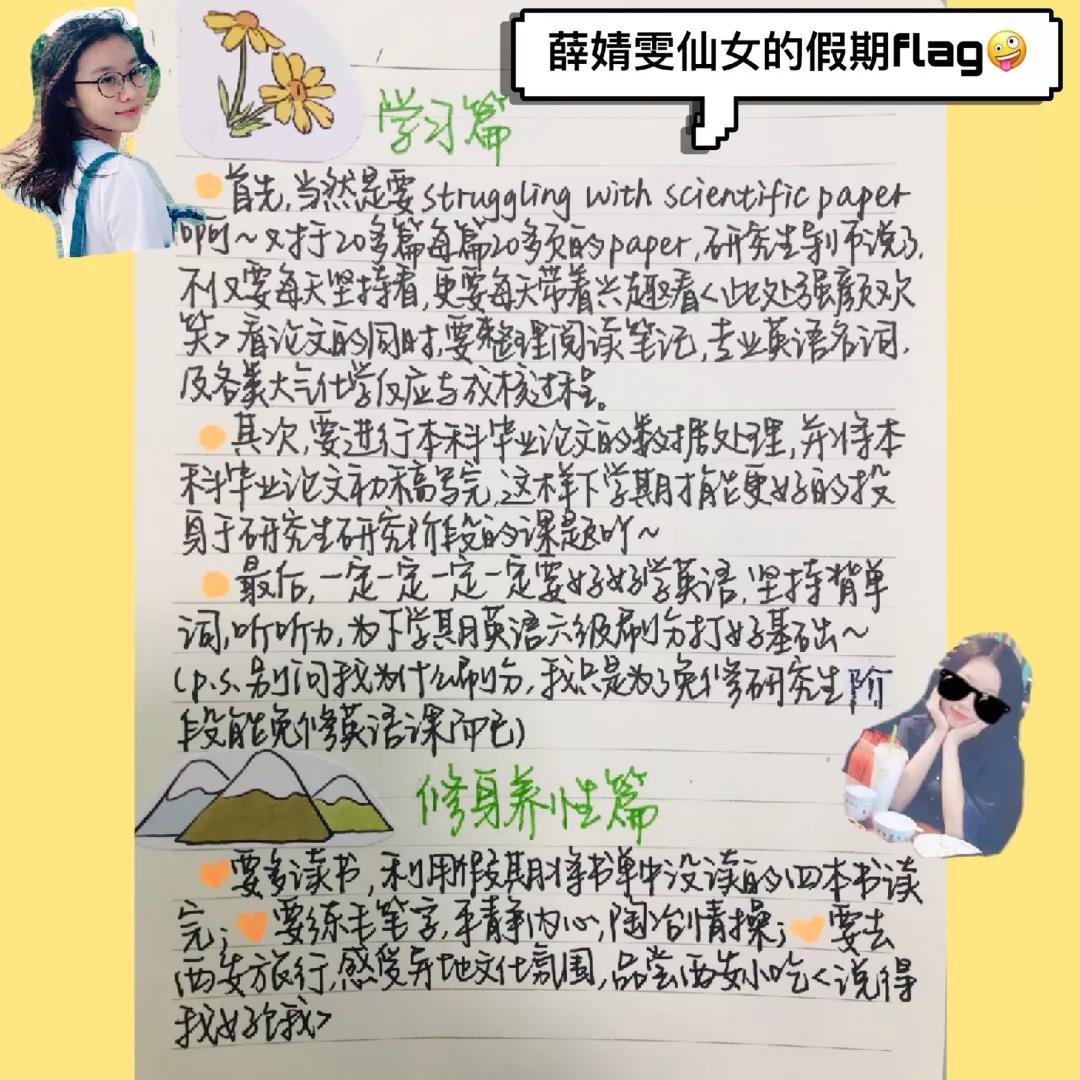 薛婧雯仙女的假期flag🤪
学习篇
首先,当然是要struggling with scientific paper
啊~对于20多篇每篇20多页的paper,研究生别币说了,
不仅要每天坚持看,更要每天带着兴趣看<此处强颜欢
笑>看论文的同时,要整理阅读笔记,专业英语名词,
及各类大气化学反应与成核过程。
其次,要进行本科毕业论文的数据处理,并将本
科毕业论文初稿写完,这样下学期才能更好的投
身于研究生研究阶段的课题吖~
最后,一定一定一定一定要好好学英语,坚持背单
词,听听力,为下学期英语六级刷分打好基础~
(p.s.别问我为什么刷分,我只是为了免修研究生阶
段能免修英语课而已)
修身养性篇
要多读书,利用假期将书单中没读的四本书读
完;要练毛笔字,平静内心,陶冶情操;要去
西安旅行,感受异地文化氛围,品尝西安小吃<说得
我好饿>